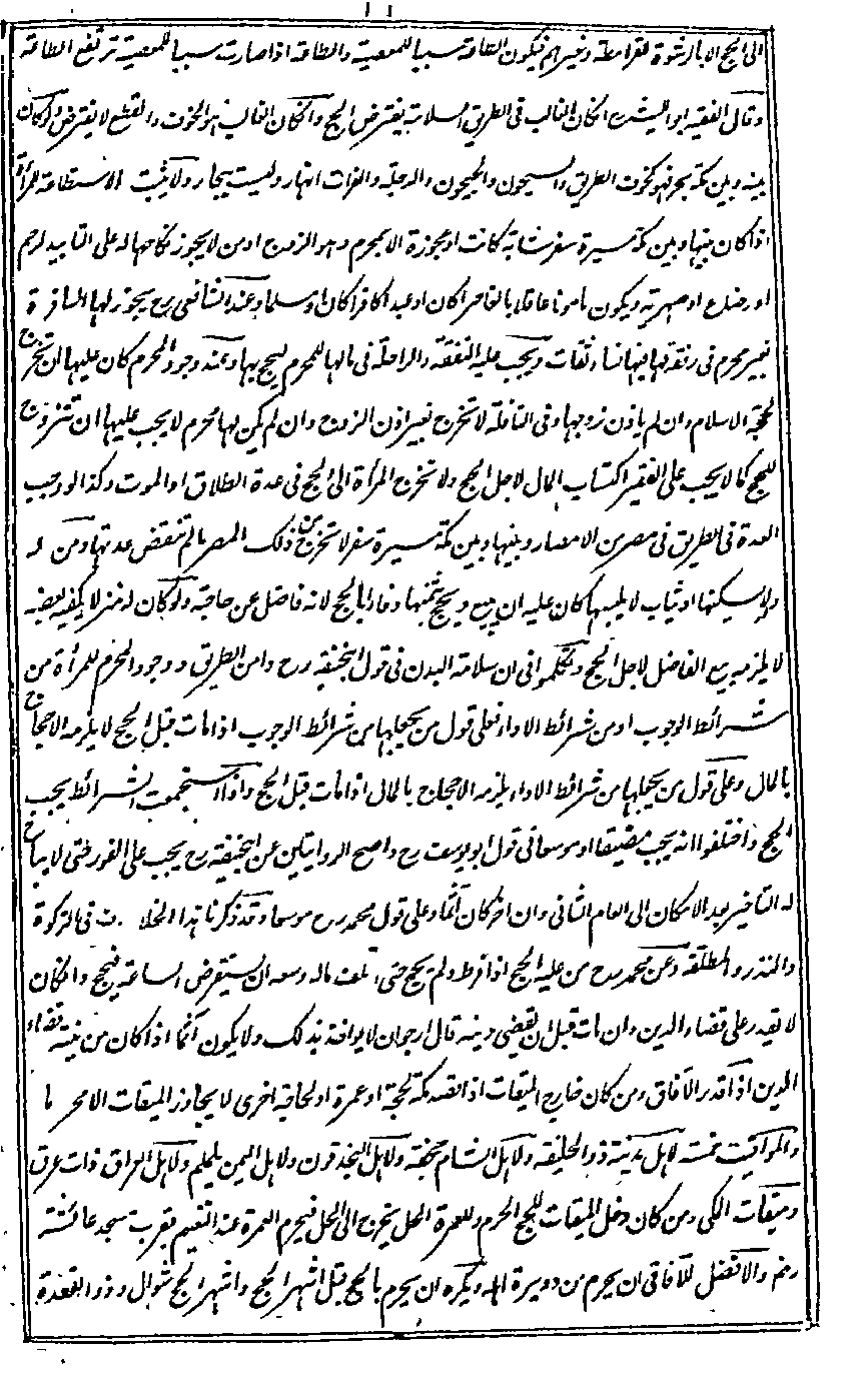 الى الحج الا بالرشوة للقرامطة وغيرهم فيكون الطاعة سببا للمعصية والطاعة اذا صارت سببا للمعصية ترتفع الطاعة
وقال الفقيه ابو الليث رح ان كان الغالب فى الطريق السلامة يفترض الحج وان كان الغالب هو الخوف والقطع لا يفترض وان كان
بينه وبين مكة بحر فهو كخوف الطريق والسيحون والجيحون والدجلة والفرات انهار وليست ببحار ولا يثبت الاستطاعة للمرأة
اذا كان بينها وبين مكة مسيرة سفر شابة كانت او عجوزة الا بمحرم وهو الزوج او من لا يجوز نكاحها له على التابيد لرحم
او رضاع او صهرية ويكون مأمونا عاقلا بالغا حرا كان او عبدا كافرا كان او مسلما وعند الشافعى رح يجوز لها المسافرة
بغير محرم فى رفقة لها فيها نساء ثقات ويجب عليها النفقة والراحلة فى مالها للمحرم ليحج بها وعند وجود المحرم كان عليها ان تخرج
لحجة الاسلام وان لم ياذن زوجها وفى النافلة لا تخرج بغير اذن الزوج وان لم يكن لها محرم لا يجب عليها ان تتزوج
للحج كما لا يجب على الفقير اكتساب المال لاجل الحج ولا تخرج المرأة الى الحج فى عدة الطلاق او الموت وكذا لو وجب
العدة فى الطريق فى مصر من الامصار وبينها وبين مكة مسيرة سفر لا تخرج من ذلك المصر ما لم تنقض عدتها ومن له
دار لا يسكنها او ثياب لا يلبسها كان عليه ان يبيع ويحج بثمنها وفاء بالحج لانه فاضل عن حاجته ولو كان له منزل يكفيه بعضه
لا يلزمه بيع الفاضل لاجل الحج وتكلموا فى ان سلامة البدن فى قول ابيحنيفة رح وامن الطريق ووجود المحرم للمرأة من
شرائط الوجوب او من شرائط الاداء فعلى قول من يجعلها من شرائط الوجوب اذا مات قبل الحج لا يلزمه الاحجاج
بالمال وعلى قول من يجعلها من شرائط الاداء يلزمه الاحجاج بالمال اذا مات قبل الحج واذا استجمعت الشرائط يجب
الحج واختلفوا انه يجب مضيقا او موسعا فى قول ابو يوسف رح واصح الروايتين عن ابيحنيفة رح يجب على الفور حتى لا يباح
له التاخير بعد الامكان الى العام الثانى وان اخر كان آثما وعلى قول محمد رح موسعا وقد ذكرنا هذا الخلاف فى الزكوة
والنذر والمطلقة وعن محمد رح من عليه الحج اذا فرط ولم يحج حتى تلف ماله وسعه ان يستقرض الساعة فيحج وان كان
لا يقدر على قضاء الدين وان مات قبل ان يقضى دينه قال ارجو ان لا يواخذ بذلك ولا يكون آثما اذا كان من نيته قضاء
الدين اذا قدر الآفاق ومن كان خارج الميقات اذا قصد مكة لحجة او عمرة او لحاجة اخرى لا يجاوز الميقات الا محرما
والمواقيت خمسة لاهل مدينة ذو الحليفة ولاهل الشام جحفة ولاهل النجد قرن ولاهل اليمن يلملم ولاهل العراق ذات عرق
وميقات المكى ومن كان دخل الميقات للحج الحرم وللعمرة الحل يخرج الى الحل فيحرم العمرة عند التنعيم بقرب مسجد عائشة
رضم والافضل للآفاقى ان يحرم من دويرة اهله ويكره ان يحرم بالحج قبل اشهر الحج واشهر الحج شوال وذو القعدة